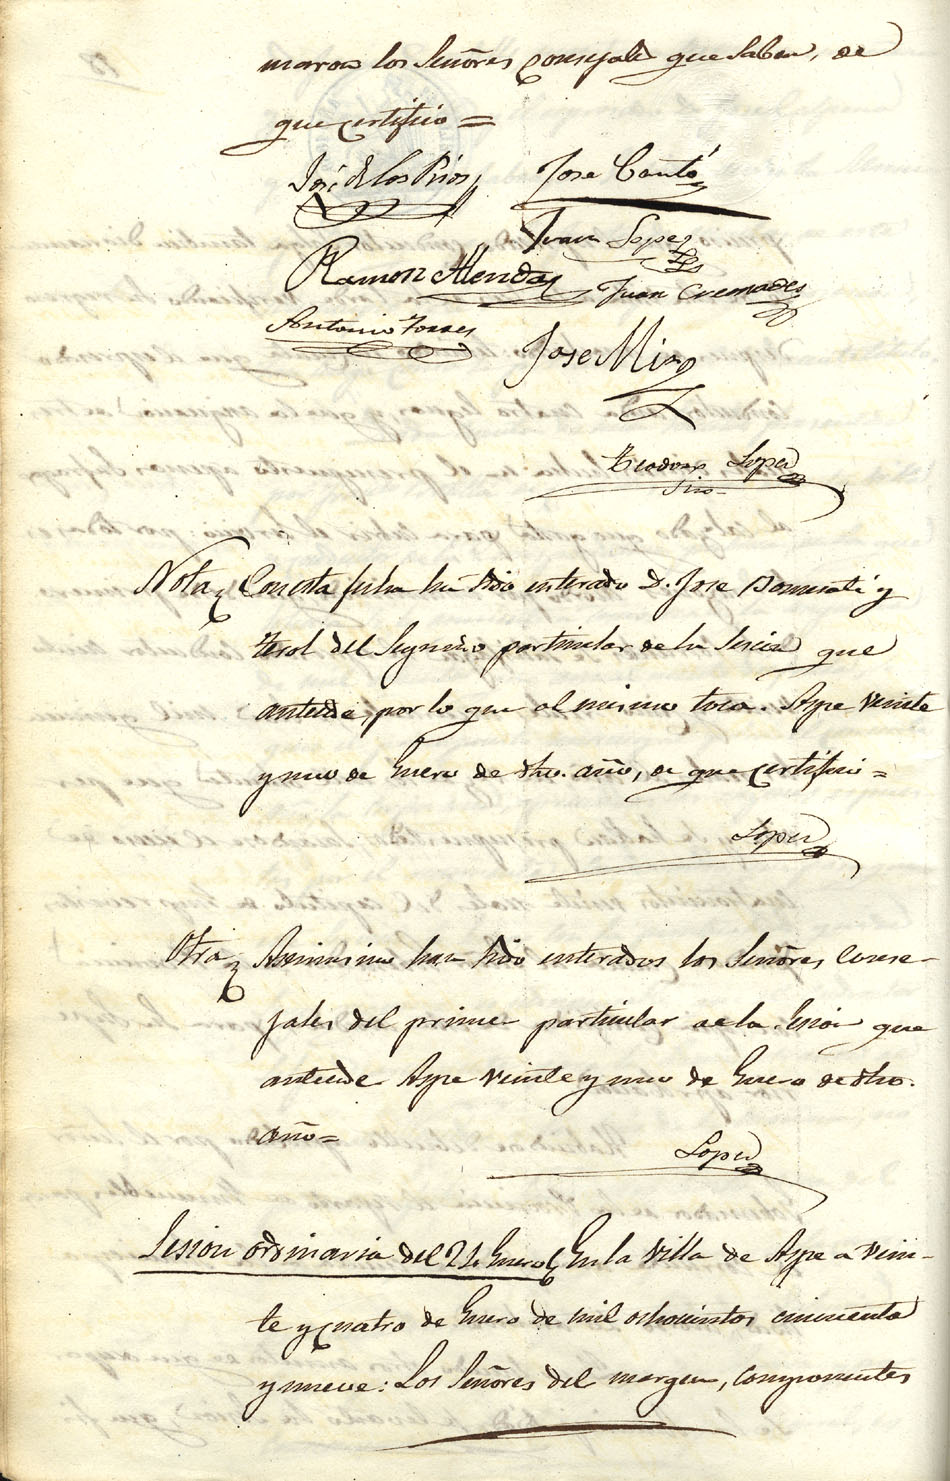 maron los Señores Consejales que saben, de
que certifico =
José de los Rios
Jose Cantó
Juan Lopez
Ramon Alenda
Juan Cremades
Antonio Torres
Jose Mira
Teodoro Lopez
Srio.
Nota Con esta fecha ha sido enterado D. Jose
y
Terol del segundo particular de la Sesion que
antecede, por lo que al mismo toca. Aspe veinte
y uno de Enero de dho. año, de que certifico =
Lopez
Otra Asimismo han sido enterados los Señores Conse-
jales del primer particular de la Sesion que
antecede Aspe veinte y uno de Enero de dho.
año =
Lopez
Sesion ordinaria del 24 Enero En la Villa de Aspe a vein-
te y cuatro de Enero de mil ochocientos cincuenta
y nueve: Los Señores del margen, componentes